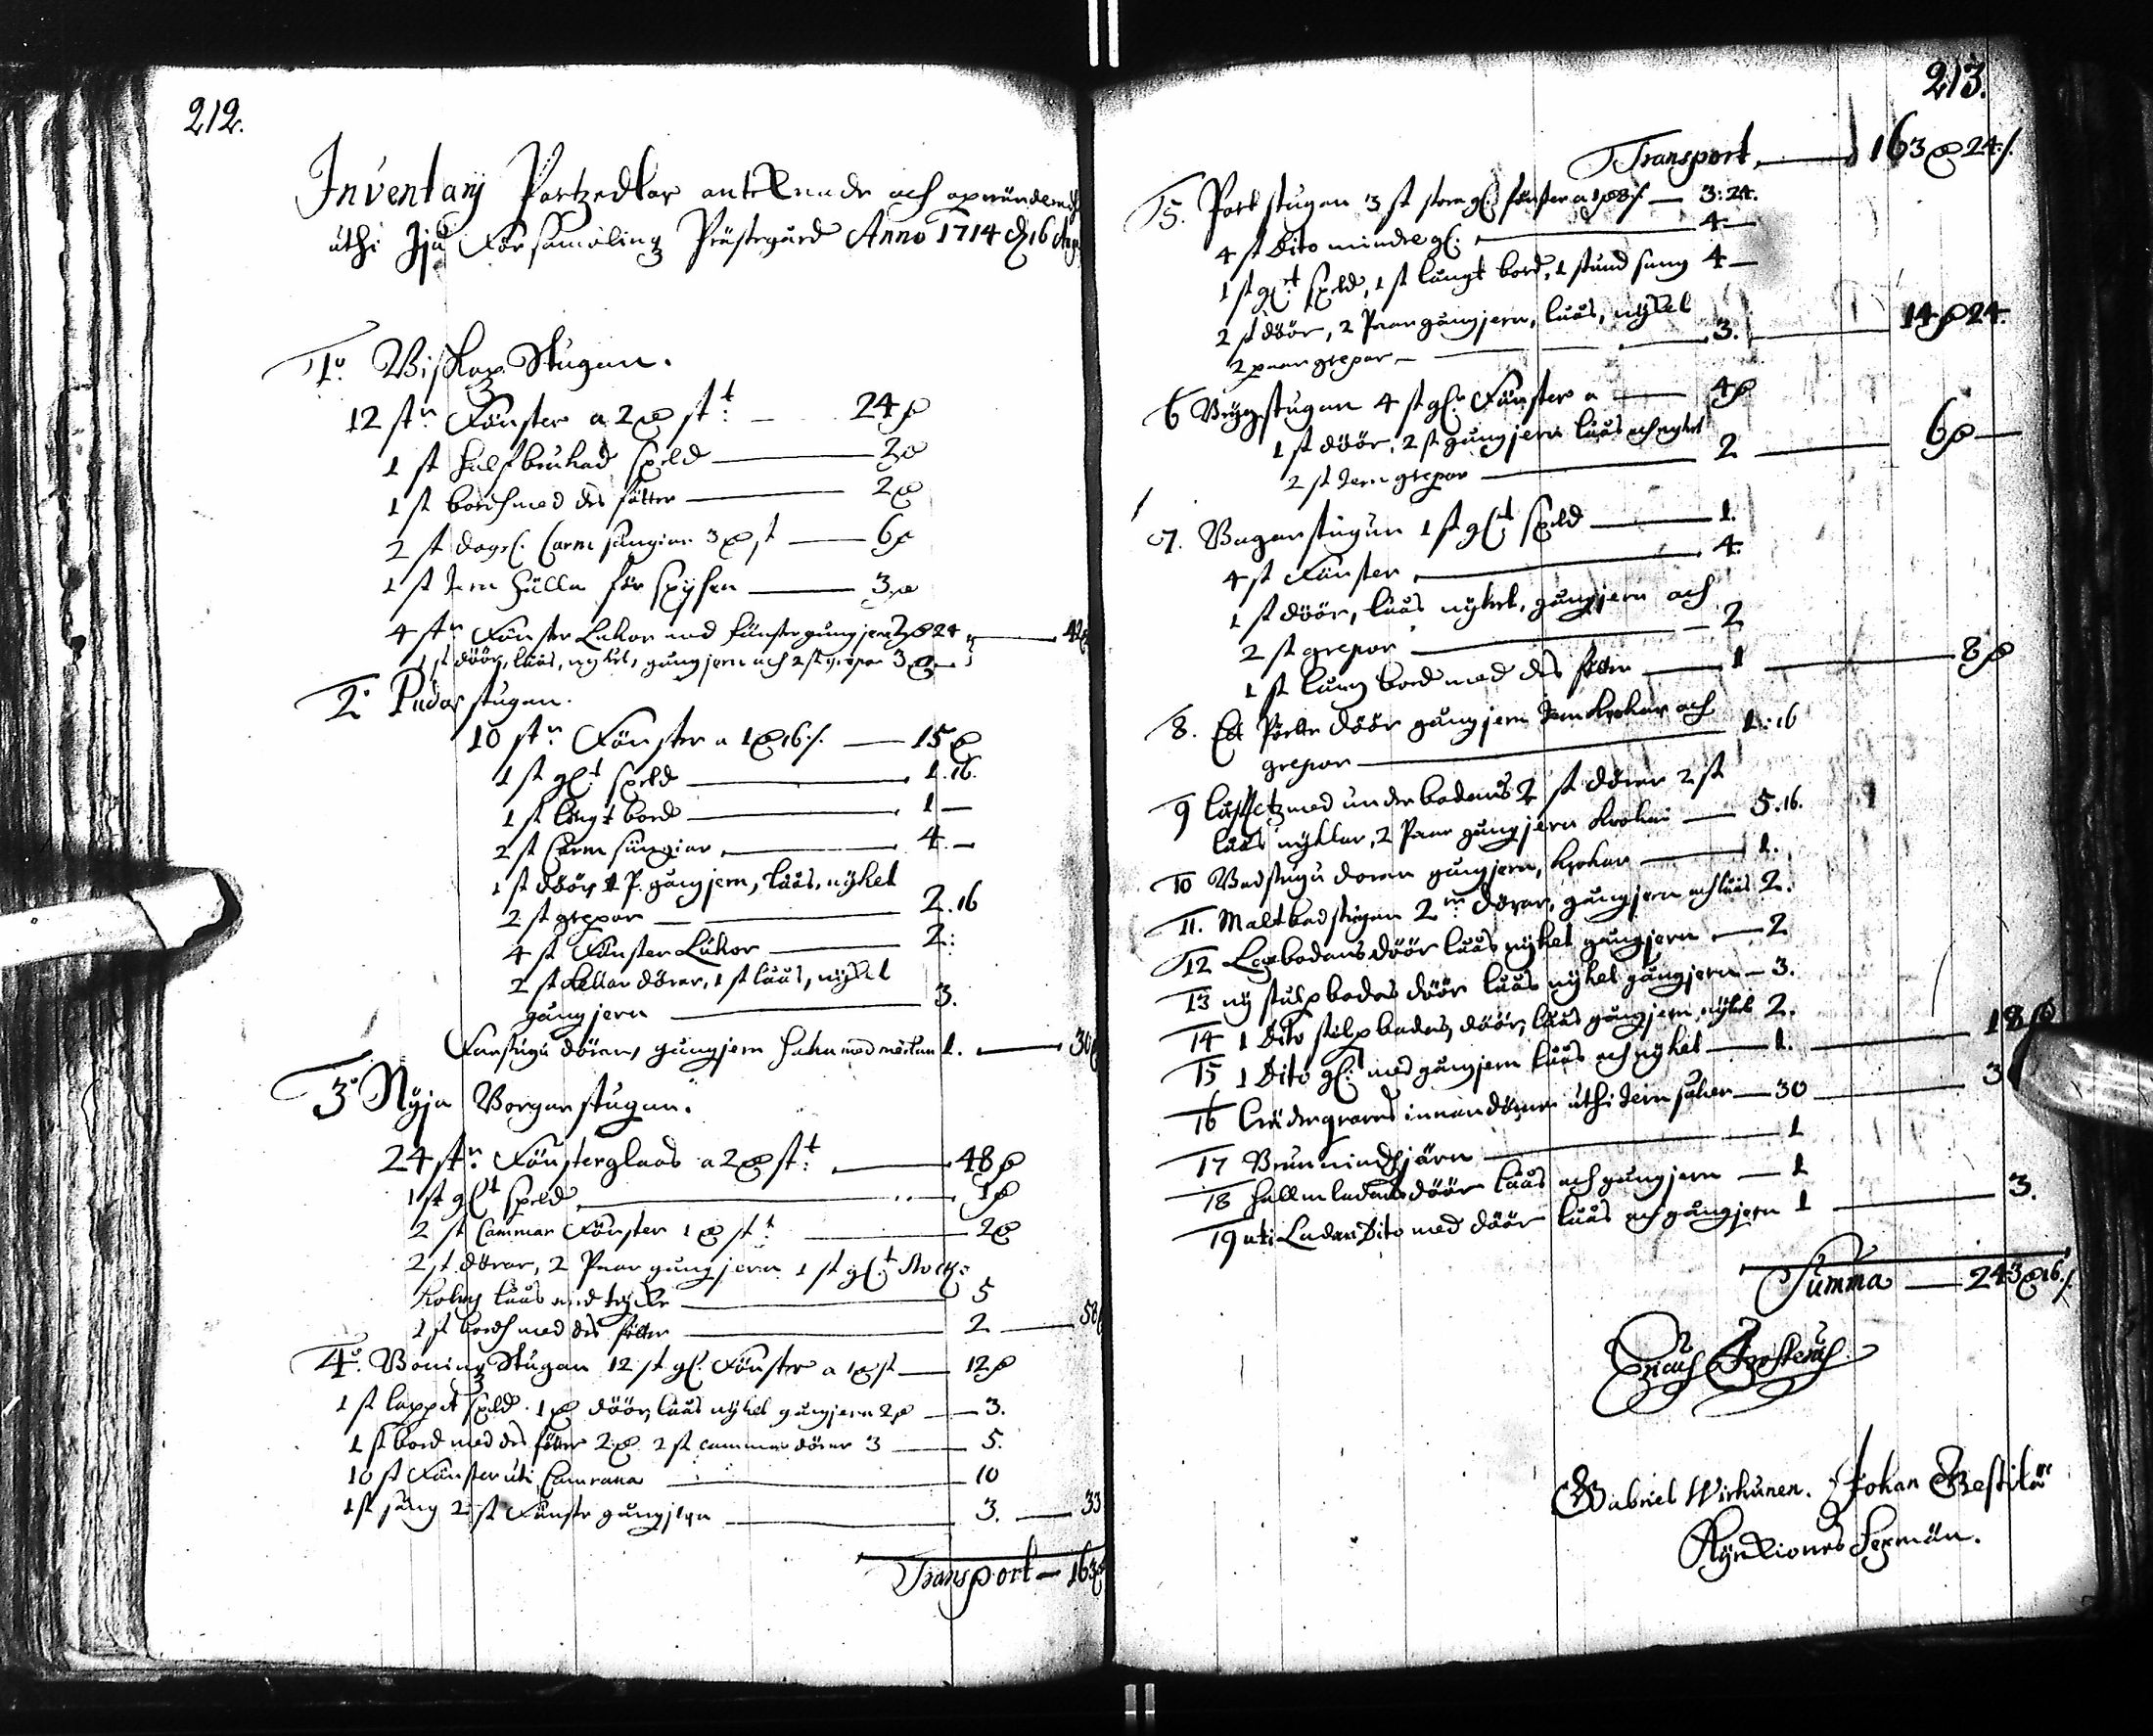 212.
Inventarij Partzedlar anteknade och
uthi Ijå Församling Prästegård Anno 1714 d 16
1o. Biskop Stugan.
12 stn Fönster a 2 stt: — 24
1 st half brukad speld — 2
1 st bordh med des fötter — 2
2 st Carm sängiar 3 st — 6
1 st Jern hälla för spijsen — 3
4 stn Fönster Lukor med fönster gångjern 24
1 st döör, låås, nykel, gångjern och 2 st grepar 3
2o stugan.
10 stn Fönster a 1 16 /. — 15
1 st glt speld — 1.16.
1 st långt bord — 1 —
2 st Carm sängiar — 4. —
1 st döör, 1 P. gångjern, låås, nÿkel
2 st grepar — 2.16
4 st Fönster Lukor — 2:
2 st dörar, 1 st låås, nÿkel
gångjern — 3.
Farstugu dören, gångjern haka med 1. — 30
3o Nyja Borgarstugan.
24 stn Fönsterglaas a 2 stt: — 48
1 st glt speld — 1
2 st Cammar Fönster 1 stt — 2
2 st dörar, 2 Paar gångjern 1 st glt
låås med — 5
1 st bordh med des fötter — 2 — 58
4o. Boning Stugan 12 st gl. Fönster a 1 st — 12
1 st lappat speld 1 döör, låås nÿkel gångjern 2 — 3.
1 st bord med des fötter 2. 2 st cammar dörar 3 — 5.
10 st Fönster uti Camrarna — 10
1 st säng 2 st Fönster gångjern — 3. — 33
Transport — 163
213.
Transport — 163 24 /.
5. Pörtstugan 3 st stora gl. fönster a 1 8 /. — 3:24.
4 st Dito mindre gl. — 4 —
1 st glt speld, 1 st långt bord, 1 stånd säng 4 —
2 st döör, 2 Paar gångjern, låås, nÿkel
2 paar grepar — 3. — 14 24.
6 Bryggstugan 4 st gl. Fönster a — 4
1 st döör, 2 st gångjern låås och nykel
2 st Jern grepar — 2 — 6 —
7. Bagarstugun 1 st glt speld — 1.
4 st Fönster — 4.
1 st döör, låås nÿkel, gångjern och
2 st grepor — 2
1 st lång bord med des fötter — 1 — 8
8. Ett Pörte döör gångjern Jern krokar och
grepor — 1:16
9 med underbodens 2 st dörar 2 st
låås nÿklar, 2 Paar gångjern krokar — 5.16.
10 Badstugu doren gångjern, krokar — 1.
11. Maltbadstugan 2 dörar, gångjern och låås 2.
12 bodans döör låås nÿkel gångjern — 2
13 nÿ stulpbodas döör låås nÿkel gångjern — 3.
14 1 Dito stulpbodas döör, låås gångjern, nÿkel 2.
15 1 Dito gl. med gångjern låås och nÿkel — 1. — 18
16 innandörar uthi Jern saker — 30 — 3
17 — 1
18 ladans döör låås och gångjern — 1
19 uti Ladan Dito med döör låås och gångjern 1 — 3.
Summa — 243 16 /.
Ericus
Gabriel Wirkunen. Johan
Kÿrkiones Sexmän.